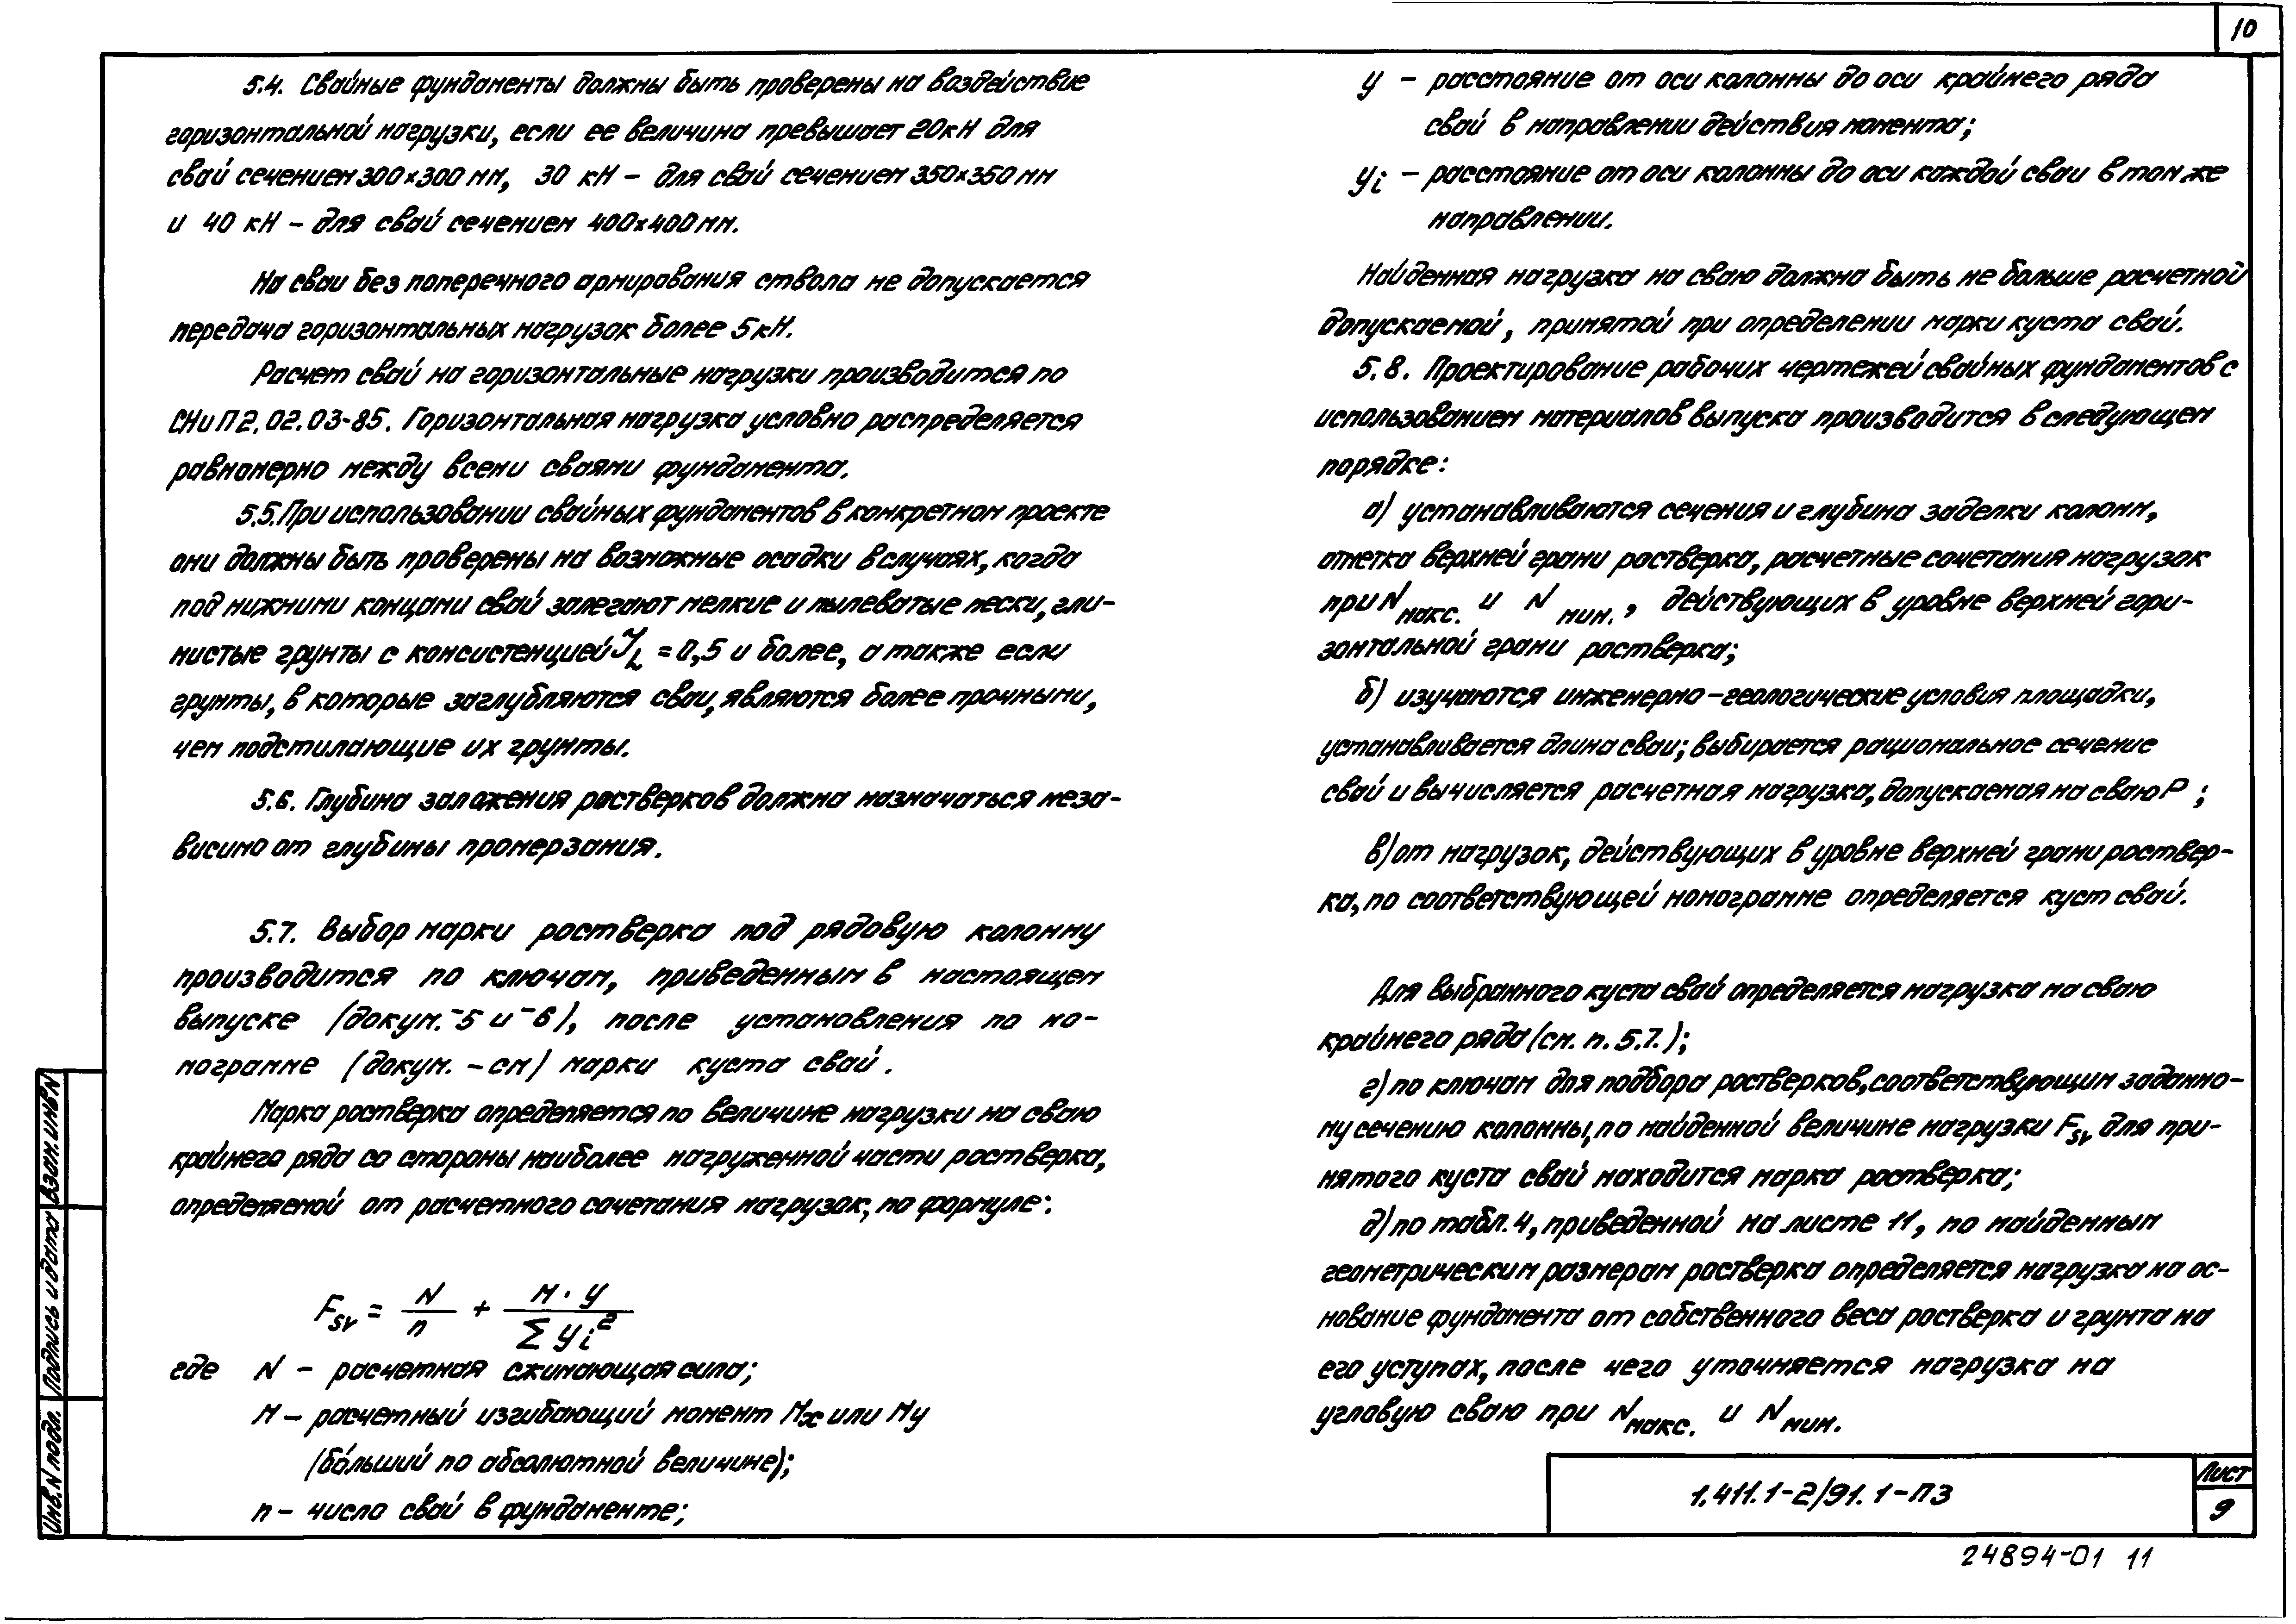 10
5.4. Свайные фундаменты должны быть проверены на воздействие
горизонтальной нагрузки, если ее величина превышает 20кН для
свай сечением 300×300 мм, 30 кН – для свай сечением 350×350 мм
и 40 кН – для свай сечением 400×400 мм.
На сваи без поперечного армирования ствола не допускается
передача горизонтальных нагрузок более 5кН.
Расчет свай на горизонтальные нагрузки производится по
СНиП 2.02.03-85. Горизонтальная нагрузка условно распределяется
равномерно между всеми сваями фундамента.
5.5. При использовании свайных фундаментов в конкретном проекте
они должны быть проверены на возможные осадки в случаях, когда
под нижними концами свай залегают мелкие и пылеватые пески, гли-
нистые грунты с консистенцией J_L = 0,5 и более, а также если
грунты, в которые заглубляются сваи, являются более прочными,
чем подстилающие их грунты.
5.6. Глубина заложения ростверков должна назначаться неза-
висимо от глубины промерзания.
5.7. Выбор марки ростверка под рядовую колонну
производится по ключам, приведенным в настоящем
выпуске (докум. -5 и -6), после установления по но-
мограмме (докум. -см) марки куста свай.
Марка ростверка определяется по величине нагрузки на сваю
крайнего ряда со стороны наиболее нагруженной части ростверка,
определяемой от расчетного сочетания нагрузок, по формуле:
F_sv = N/n + M·y / Σ y_i²
где N – расчетная сжимающая сила;
M – расчетный изгибающий момент Mx или My
(бо́льший по абсолютной величине);
n – число свай в фундаменте;
y – расстояние от оси колонны до оси крайнего ряда
свай в направлении действия момента;
y_i – расстояние от оси колонны до оси каждой сваи в том же
направлении.
Найденная нагрузка на сваю должна быть не больше расчетной
допускаемой, принятой при определении марки куста свай.
5.8. Проектирование рабочих чертежей свайных фундаментов с
использованием материалов выпуска производится в следующем
порядке:
а) устанавливаются сечения и глубина заделки колонн,
отметка верхней грани ростверка, расчетные сочетания нагрузок
при N макс. и N мин., действующих в уровне верхней гори-
зонтальной грани ростверка;
б) изучаются инженерно-геологические условия площадки,
устанавливается длина сваи; выбирается рациональное сечение
свай и вычисляется расчетная нагрузка, допускаемая на сваю P;
в) от нагрузок, действующих в уровне верхней грани роствер-
ка, по соответствующей номограмме определяется куст свай.
Для выбранного куста свай определяется нагрузка на сваю
крайнего ряда (см. п. 5.7.);
г) по ключам для подбора ростверков, соответствующим заданно-
му сечению колонны, по найденной величине нагрузки F_sv для при-
нятого куста свай находится марка ростверка;
д) по табл. 4, приведенной на листе 11, по найденным
геометрическим размерам ростверка определяется нагрузка на ос-
нование фундамента от собственного веса ростверка и грунта на
его уступах, после чего уточняется нагрузка на
угловую сваю при N макс. и N мин.
Взам. инв N
Подпись и дата
Инв. N подл.
1.411.1-2/91.1-ПЗ
Лист
9
24894-01 11